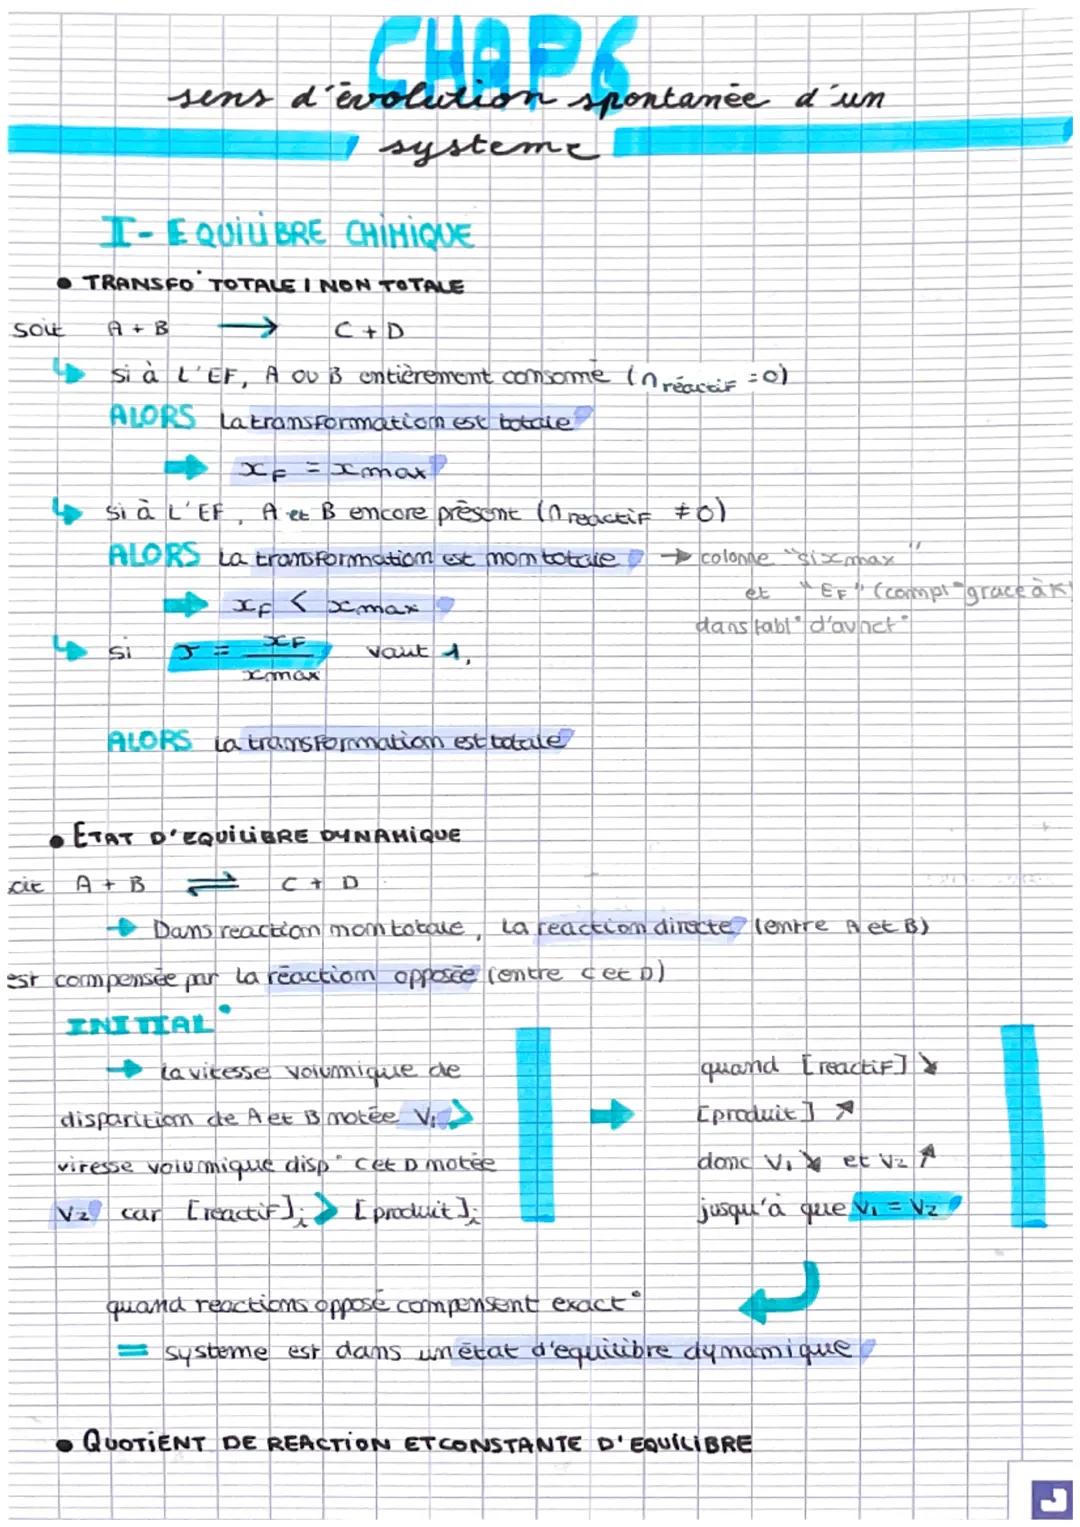 CHAP 6
sens d'évolution spontanée d'un
systeme
I- EQUILIBRE CHIMIQUE
• TRANSFO° TOTALE / NON TOTALE
soit A + B → C + D
↳ si à L'EF, A OU B entièrement consomé (n réactif = 0)
ALORS La transformation est totale
➡ xF = xmax
↳ si à L'EF, A et B encore présent (n reactif ≠ 0)
ALORS La transformation est non totale → colonne "si xmax"
et "EF" (compl° grace à K
➡ xF < xmax
dans tabl° d'avnct°
↳ si τ = xF / xmax vaut 1,
ALORS la transformation est totale
• ETAT D'EQUILIBRE DYNAMIQUE
oit A + B ⇌ C + D
➡ Dans reaction non totale, La reaction directe (entre A et B)
est compensée par la réaction opposée (entre C et D)
INITIAL°
➡ la vitesse volumique de
disparition de A et B notée V₁ >
viresse volumique disp° C et D notée
V₂ car [reactif]i > [produit]i
➡ quand [reactif] ↘
[produit] ↗
donc V₁ ↘ et V₂ ↗
jusqu'à que V₁ = V₂
quand reactions opposé compensent exact°
= systeme est dans un état d'equilibre dynamique
• QUOTIENT DE REACTION ET CONSTANTE D'EQUILIBRE